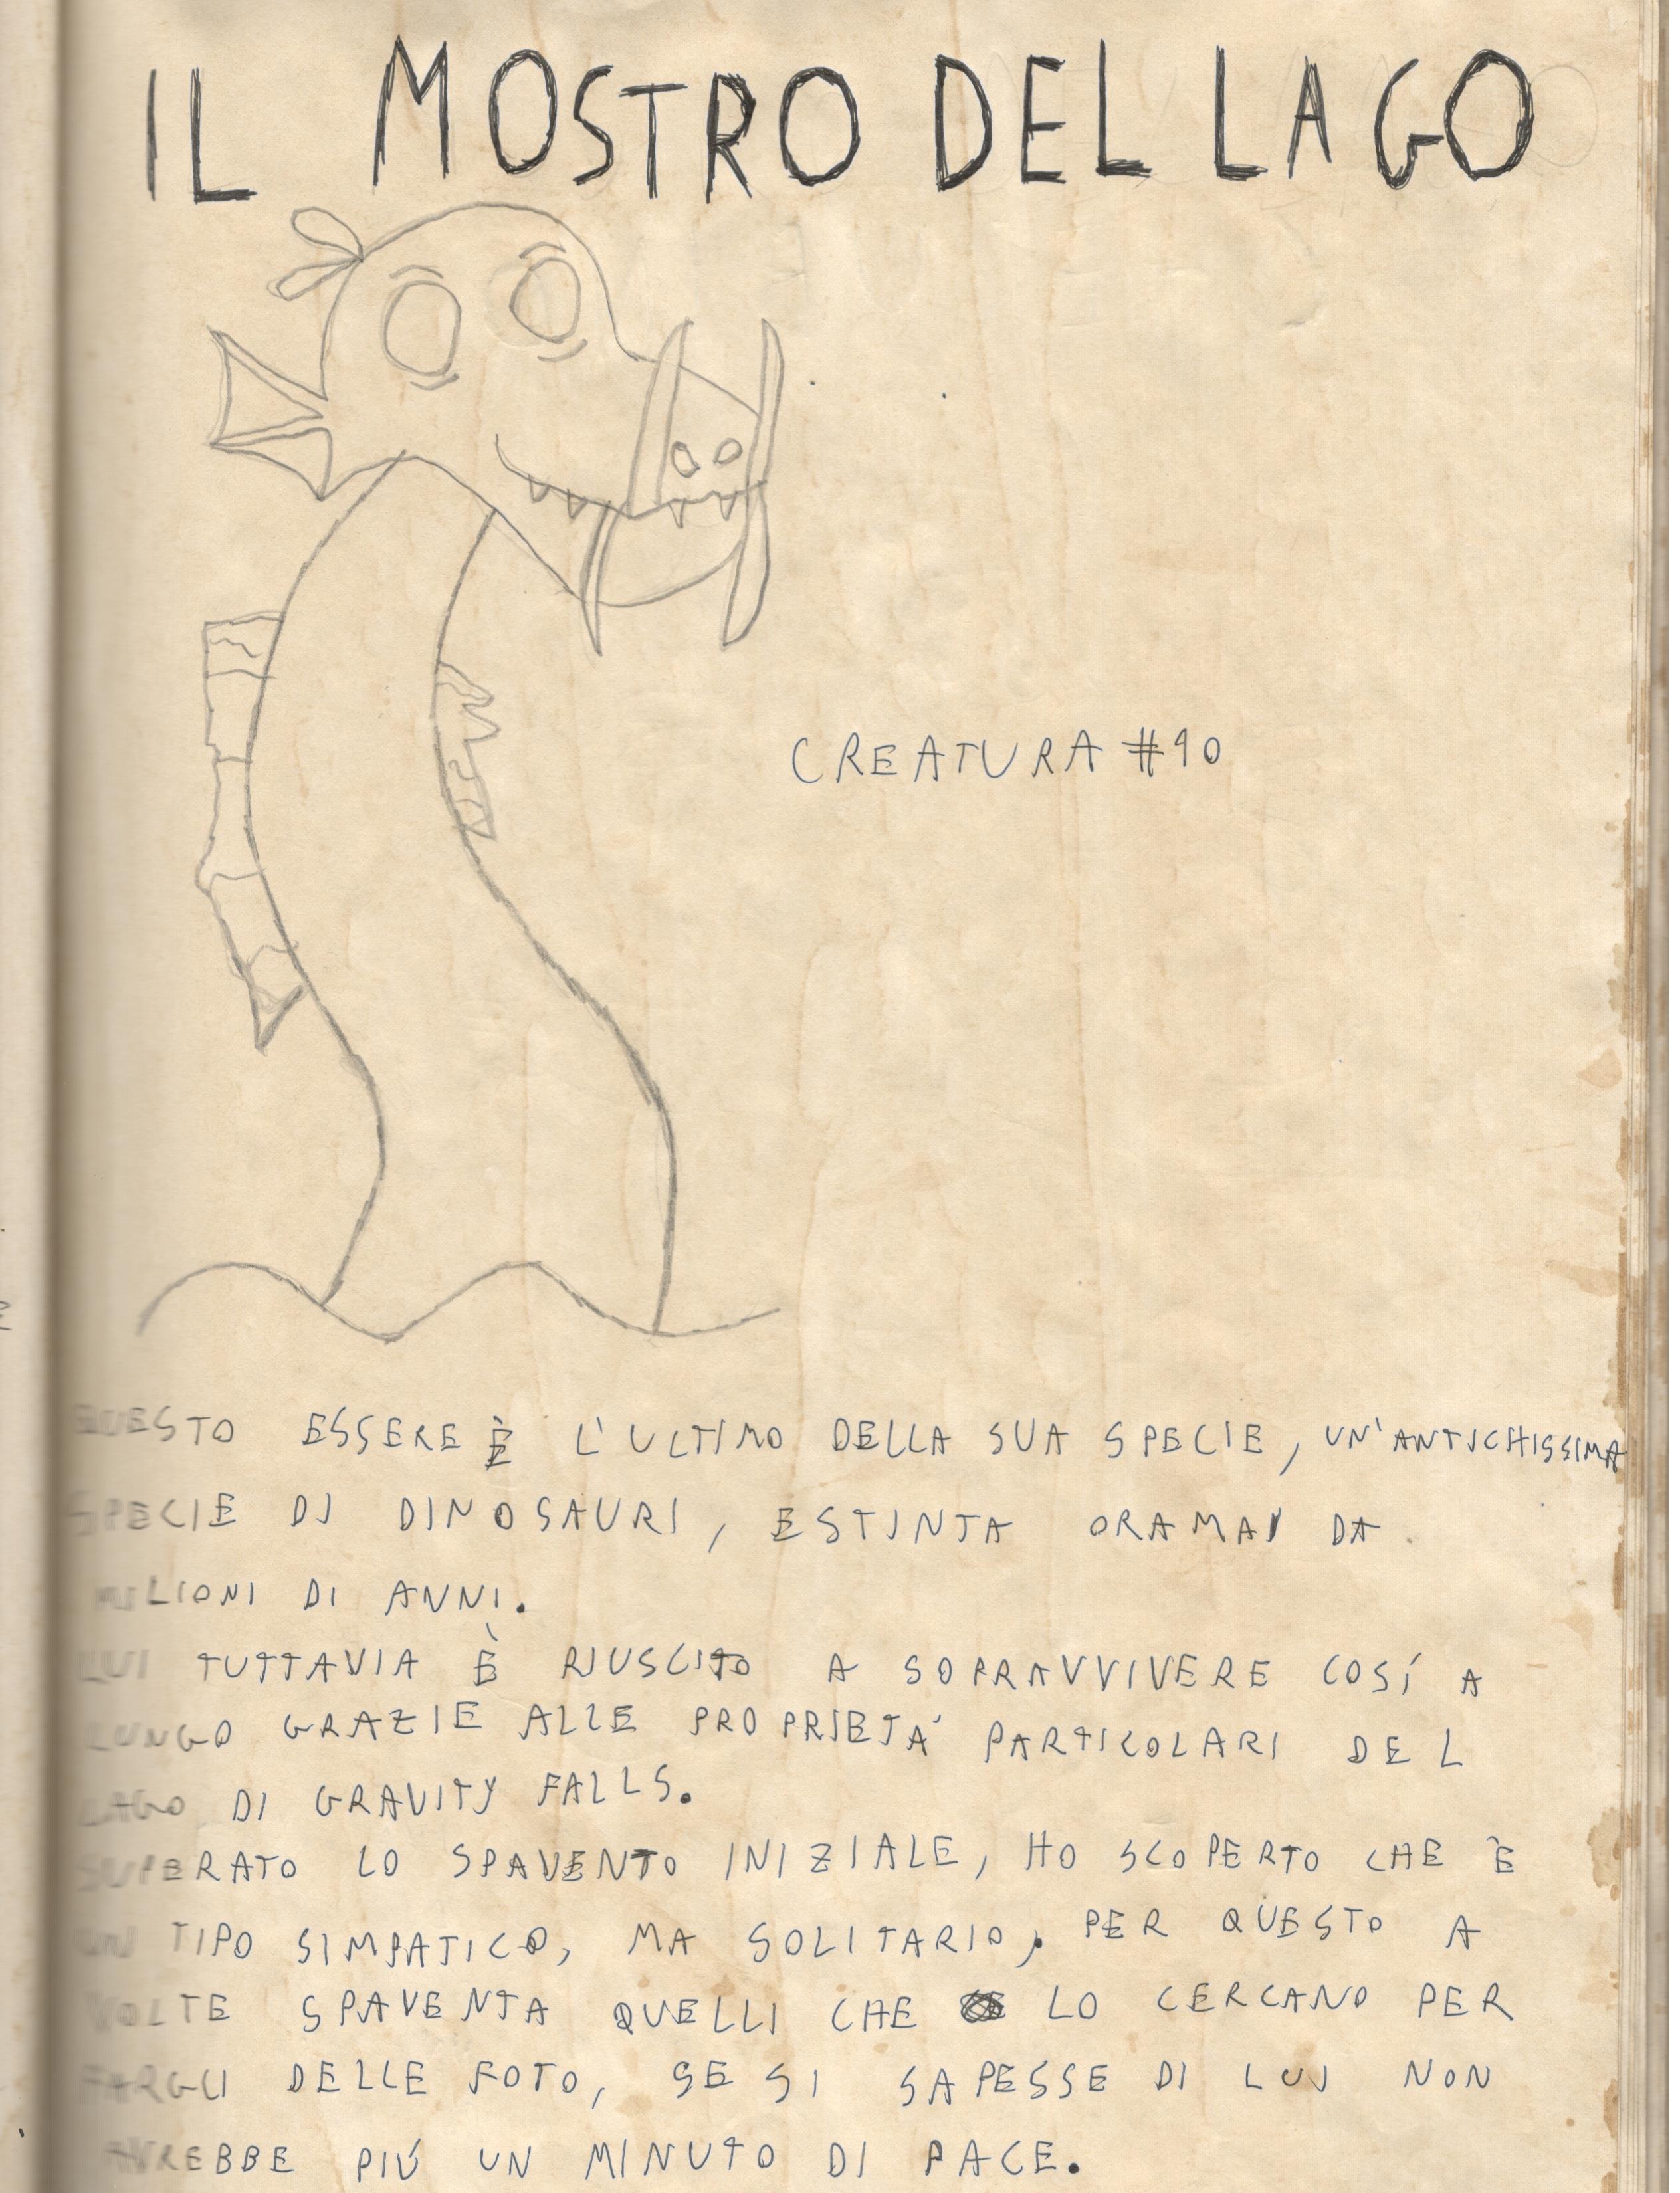 IL MOSTRO DEL LAGO
CREATURA #10
QUESTO ESSERE È L'ULTIMO DELLA SUA SPECIE, UN'ANTICHISSIMA
SPECIE DI DINOSAURI, ESTINTA ORAMAI DA
MILIONI DI ANNI.
LUI TUTTAVIA È RIUSCITO A SOPRAVVIVERE COSÍ A
LUNGO GRAZIE ALLE PROPRIETÁ PARTICOLARI DEL
LAGO DI GRAVITY FALLS.
SUPERATO LO SPAVENTO INIZIALE, HO SCOPERTO CHE È
UN TIPO SIMPATICO, MA SOLITARIO, PER QUESTO A
VOLTE SPAVENTA QUELLI CHE LO CERCANO PER
FARGLI DELLE FOTO, SE SI SAPESSE DI LUI NON
AVREBBE PIÚ UN MINUTO DI PACE.